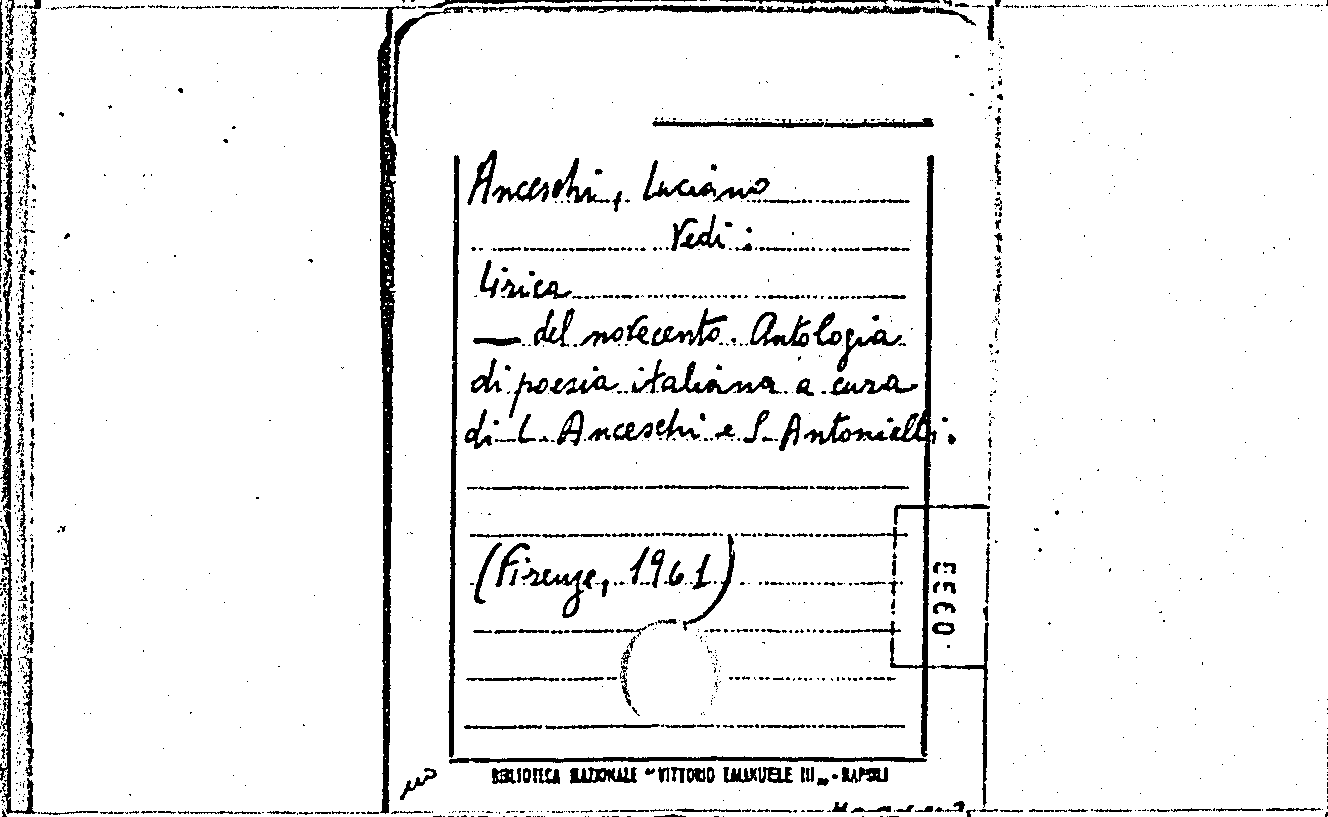 Anceschi, Luciano
Vedi:
Lirica
— del novecento. Antologia
di poesia italiana a cura
di L. Anceschi e S. Antonielli.
(Firenze, 1961)
BIBLIOTECA NAZIONALE "VITTORIO EMANUELE III„ - NAPOLI